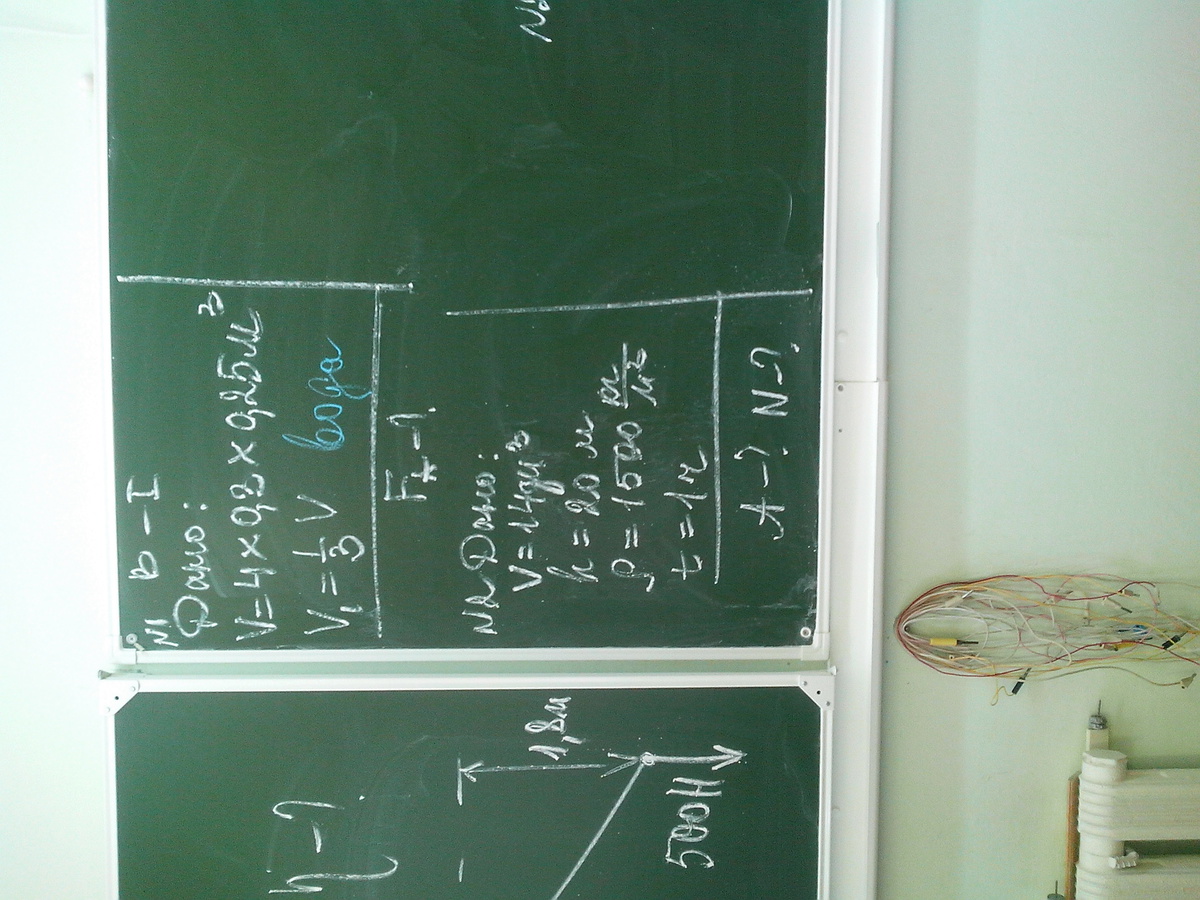 В - I
N1
Дано:
V=4×0,3×0,25м³
V₁=⅓V вода
Fₓ-?
N2 Дано:
V=14дм³
h=20м
ρ=1500 кг/м³
t=1ч
A-? N-?
N2
η-?
1,8м
500Н